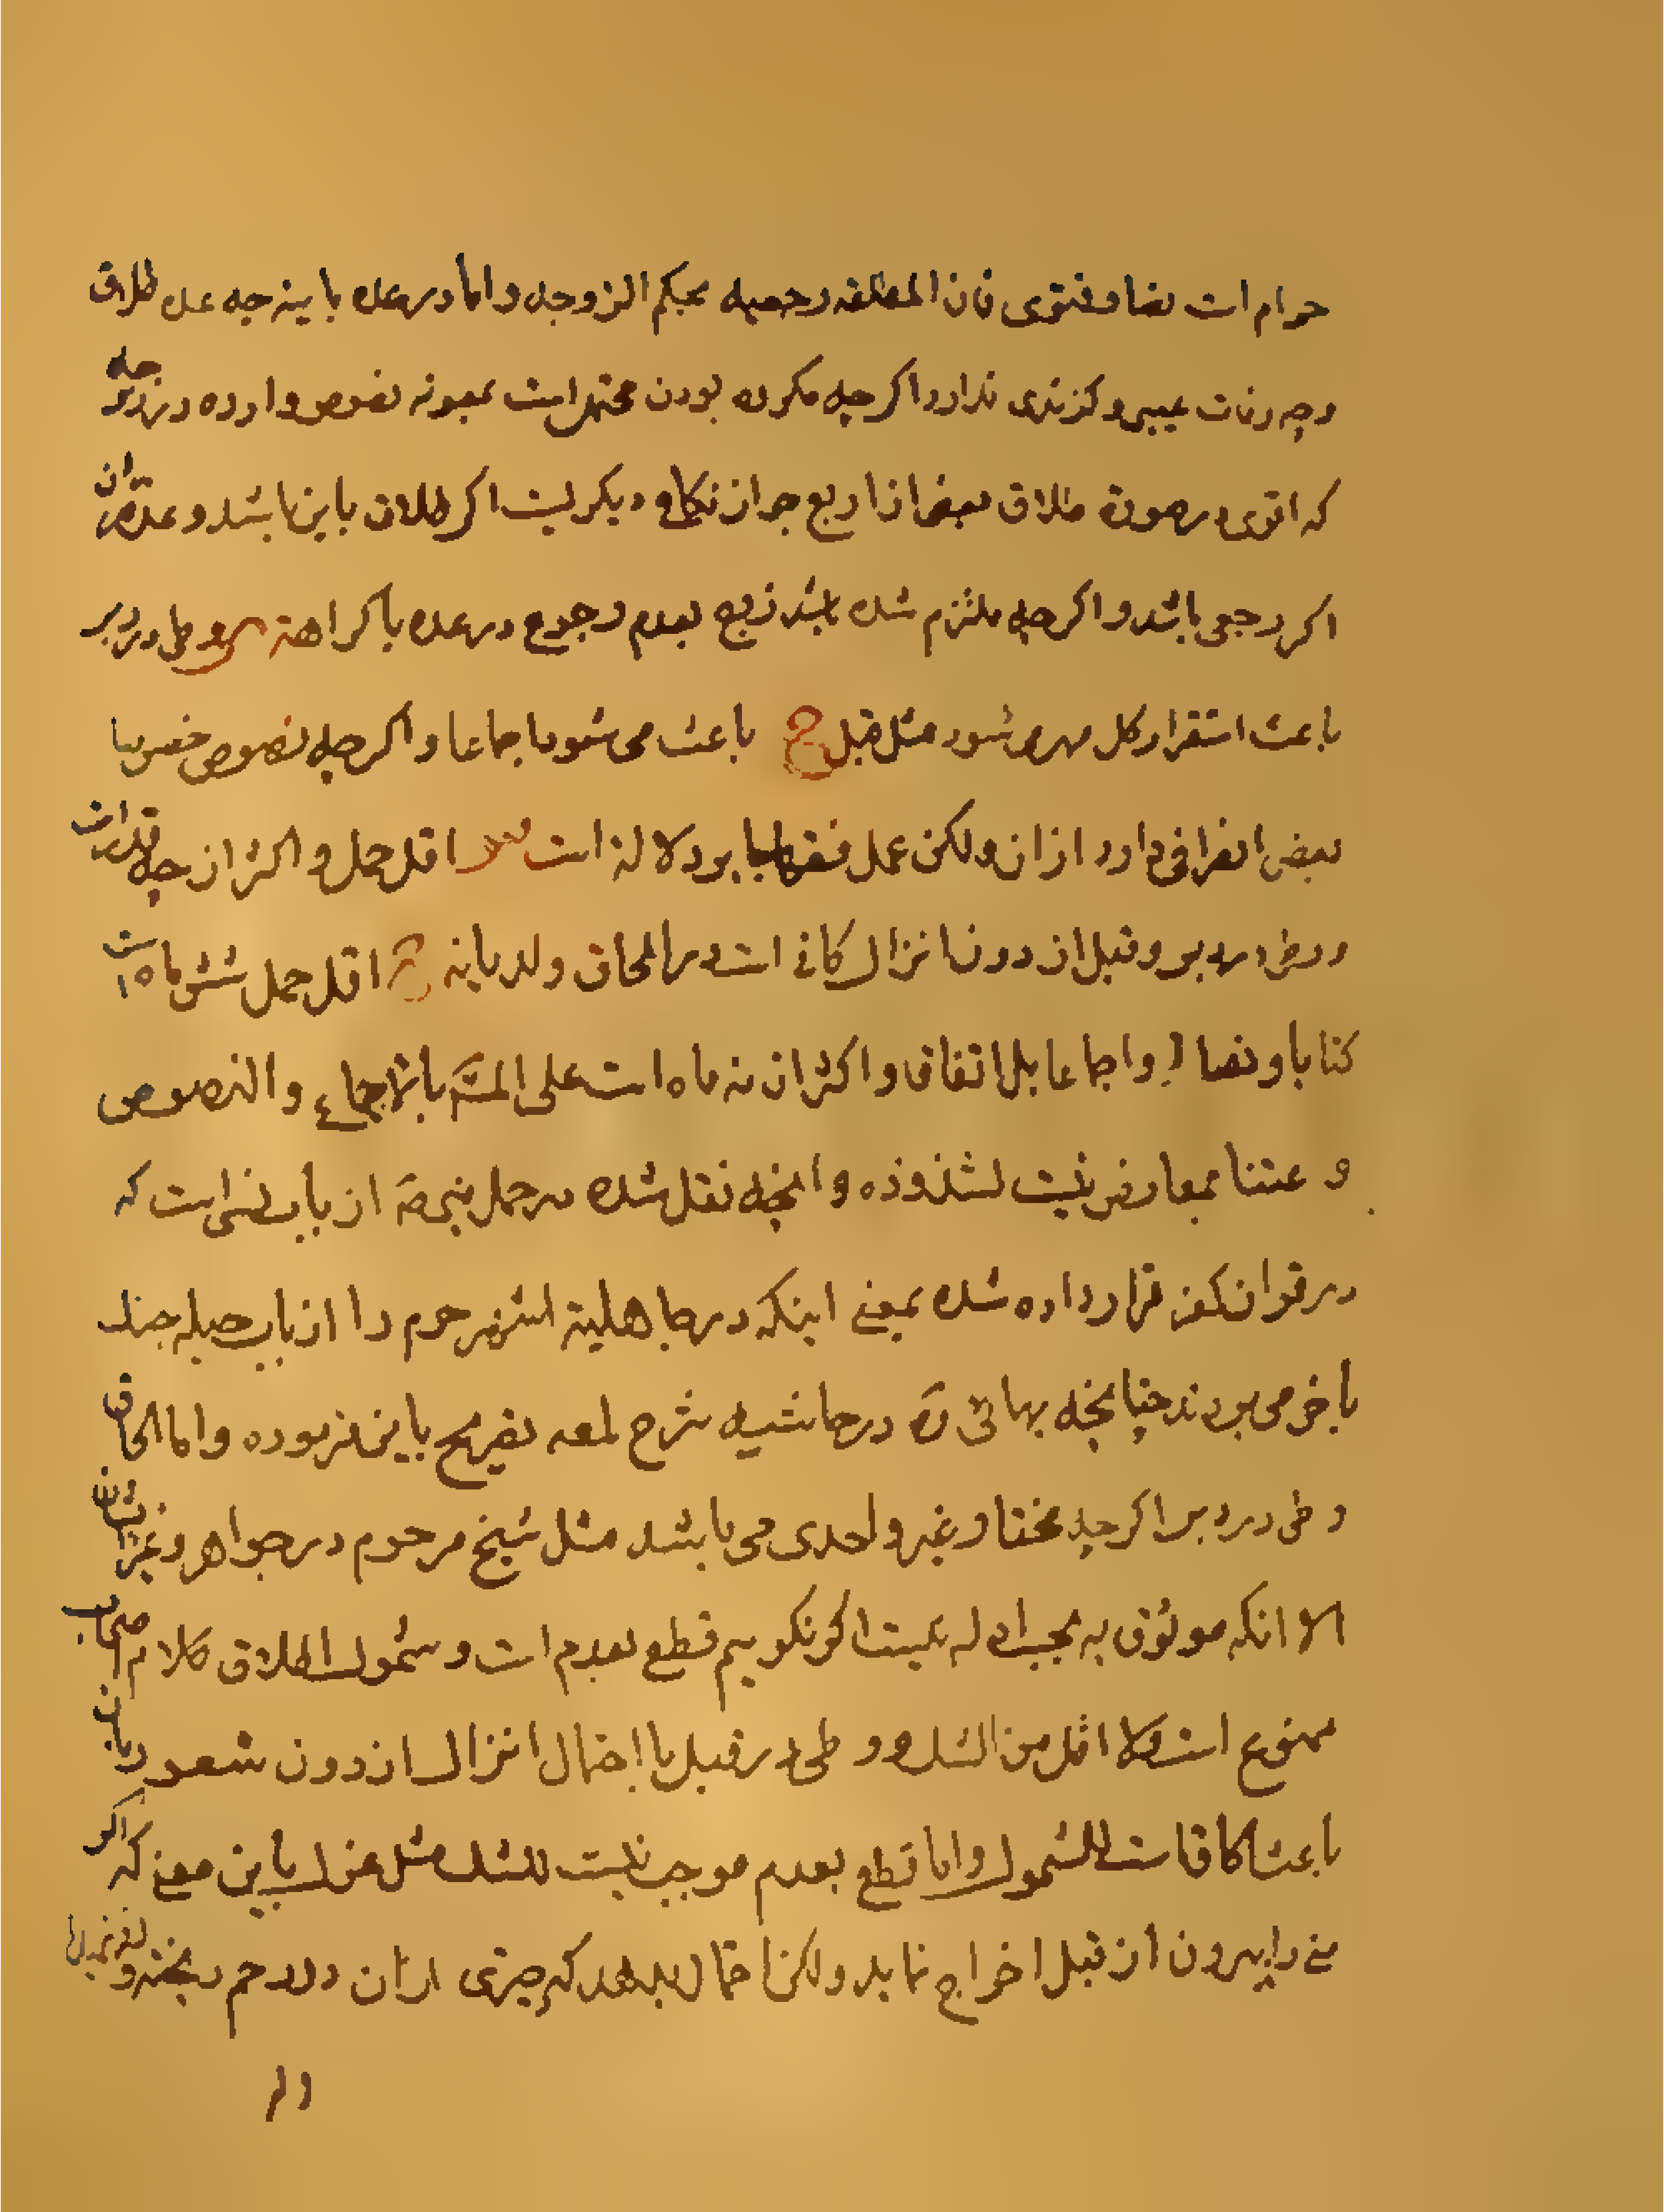 حرام است نصا و فتوی فان المطلقه رجعیه بحکم الزوجه و اما در عده باینه چه عده طلاق
و چه وفات عیبی و گزندی ندارد اکر چه مکروه بودن محتمل است بمعونه نصوص وارده در نزد چه
که اقوی در صورة طلاق بعض از اربع جواز نکاح دیکریست اکر طلاق باین باشد و عدم ان
اکر رجعی باشد و اکر چه ملتزم شده باشد زوج بعدم رجوع در عده با کراهة س وطی در دبر
باعث استقرار کل مهر می شود مثل قبل ج باعث می شود اجماعا و اکر چه نصوص خصوصا
بعض انصرافی دارد از ان ولکن عمل فقها جابر دلالة است س اقل حمل و اکثر ان چه قدر است
و وطی در دبر و قبل از دون انزال کافی است در الحاق ولد یا نه ج اقل حمل شش ماه است
کتابا و نصا و اجماعا بل اتفاقا و اکثر ان نه ماه است علی المش بالاجماع و النصوص
و عتنا بمعارض نیست لشذوذه و انچه نقل شده در حمل نبی ص از باب نسی است که
در قران کفر قرار داده شده بمعنی اینکه در جاهلیة اشهر حرم را از باب حیله جنک
باخر می بردند چنانچه بهائی ره در حاشیه شرح لمعه تصریح باین فرموده و اما الحاق
وطی در دبر اکر چه مختار غیر واحدی می باشد مثل شیخ مرحوم در جواهر و غیر ایشان
الا انکه موثوق به بحسب ادله نیست اکر نکوییم قطع بعدم است و شمول اطلاق کلام اصحاب
ممنوع است و لا اقل من الشک و وطی در قبل با احتمال انزال از دون شعور بان
باعث الحاق است للشمول و اما قطع بعدم موجب نیست للشک مثل عزل باین معنی که اکر
منی را بیرون از قبل اخراج نماید ولکن احتمال بدهد که چیزی از ان در رحم ریخته و